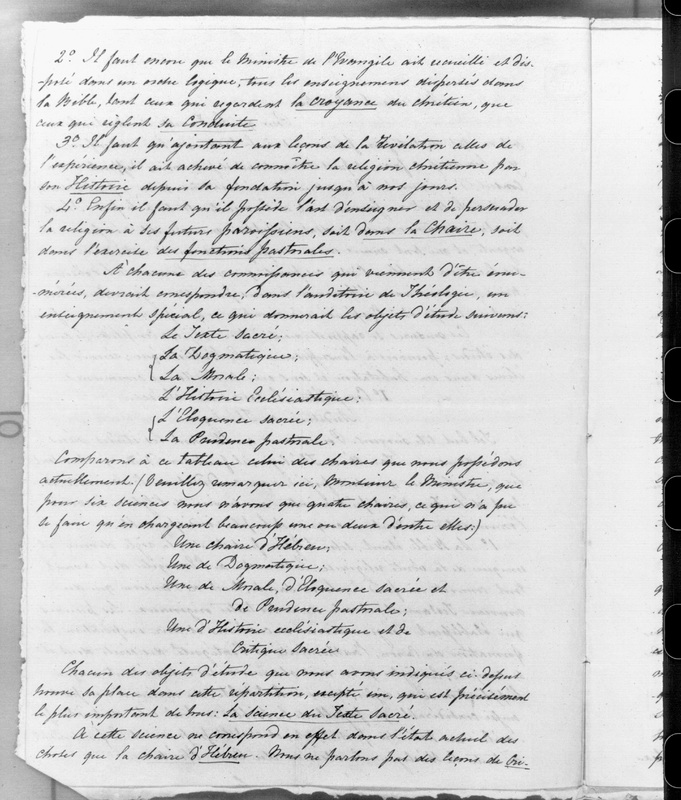 2.o Il faut encore que le Ministre de l'Evangile ait recueilli et dis-
-posé dans un ordre logique, tous les enseignemens dispersés dans
la Bible, tant ceux qui regardent la croyance du chrétien, que
ceux qui règlent sa Conduite
3.o Il faut qu'ajoutant aux leçons de la Révélation celles de
l'expérience, il ait achevé de connaître la religion chrétienne par
son Histoire depuis sa fondation jusqu'à nos jours.
4.o Enfin il faut qu'il possède l'art d'enseigner et de persuader
la religion à ses futurs paroissiens, soit dans la Chaire, soit
dans l'exercise des fonctions pastorales.
A chacune des connaissances qui viennent d'être énu-
-mérées, devrait correspondre, dans l'auditoire de Théologie, un
enseignement spécial, ce qui donnerait les objets d'étude suivans:
Le Texte Sacré;
La Dogmatique;
La Morale;
L'Histoire Ecclésiastique;
L'Eloquence sacrée;
La Prudence pastorale.
Comparons à ce tableau celui des chaires que nous possédons
actuellement. (Veuillez remarquer ici, Monsieur le Ministre, que
pour six sciences nous n'avons que quatre chaires, ce qui n'a pu
se faire qu'en chargeant beaucoup une ou deux d'entre elles.)
Une chaire d'Hébreu;
Une de Dogmatique;
Une de Morale, d'Eloquence sacrée et
de Prudence pastorale;
Une d'Histoire ecclésiastique et de
Critique Sacrée
Chacun des objets d'étude que nous avons indiqués ci-dessus
trouve sa place dans cette répartition, excepté un, qui est précisément
le plus important de tous: La science du Texte Sacré.
A cette science ne correspond en effet dans l'état actuel des
choses que la chaire d'Hébreu. Nous ne parlons pas des leçons de Cri-